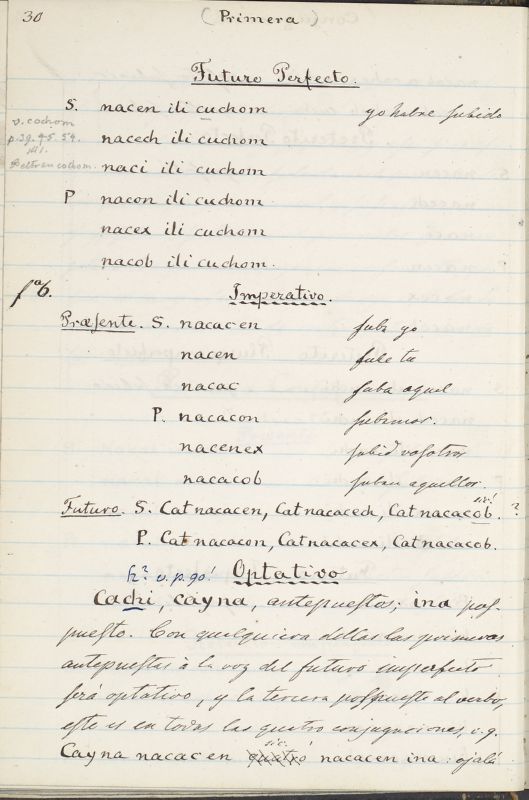 30 (Primera)
Futuro Perfecto.
S. nacen ili cuchom yo habre subido
v. cochom
p. 39. 45. 54.
nacech ili cuchom
naci ili cuchom
P nacon ili cuchom
nacex ili cuchom
nacob ili cuchom.
fº 6. Imperativo.
Præsente. S. nacacen suba yo
nacen sube tu
nacac suba aquel
P. nacacon subamos.
nacenex subid vosotros
nacacob suban aquellos.
sic!
Futuro. S. Catnacacen, Catnacacech, Catnacacob. ?
P. Catnacacon, Catnacacex, Catnacacob.
h? v. p. 90! Optativo
Cachi, cayna, antepuestos; ina pos-
puesto. Con qualquiera dellas las primeras
antepuestas à la voz del futuro imperfecto
será optativo, y la tercera pospuesta al verbo,
este es en todas las quatro conjugaciones, v. g.
sic.
Cayna nacac en ó nacacen ina: ojalá